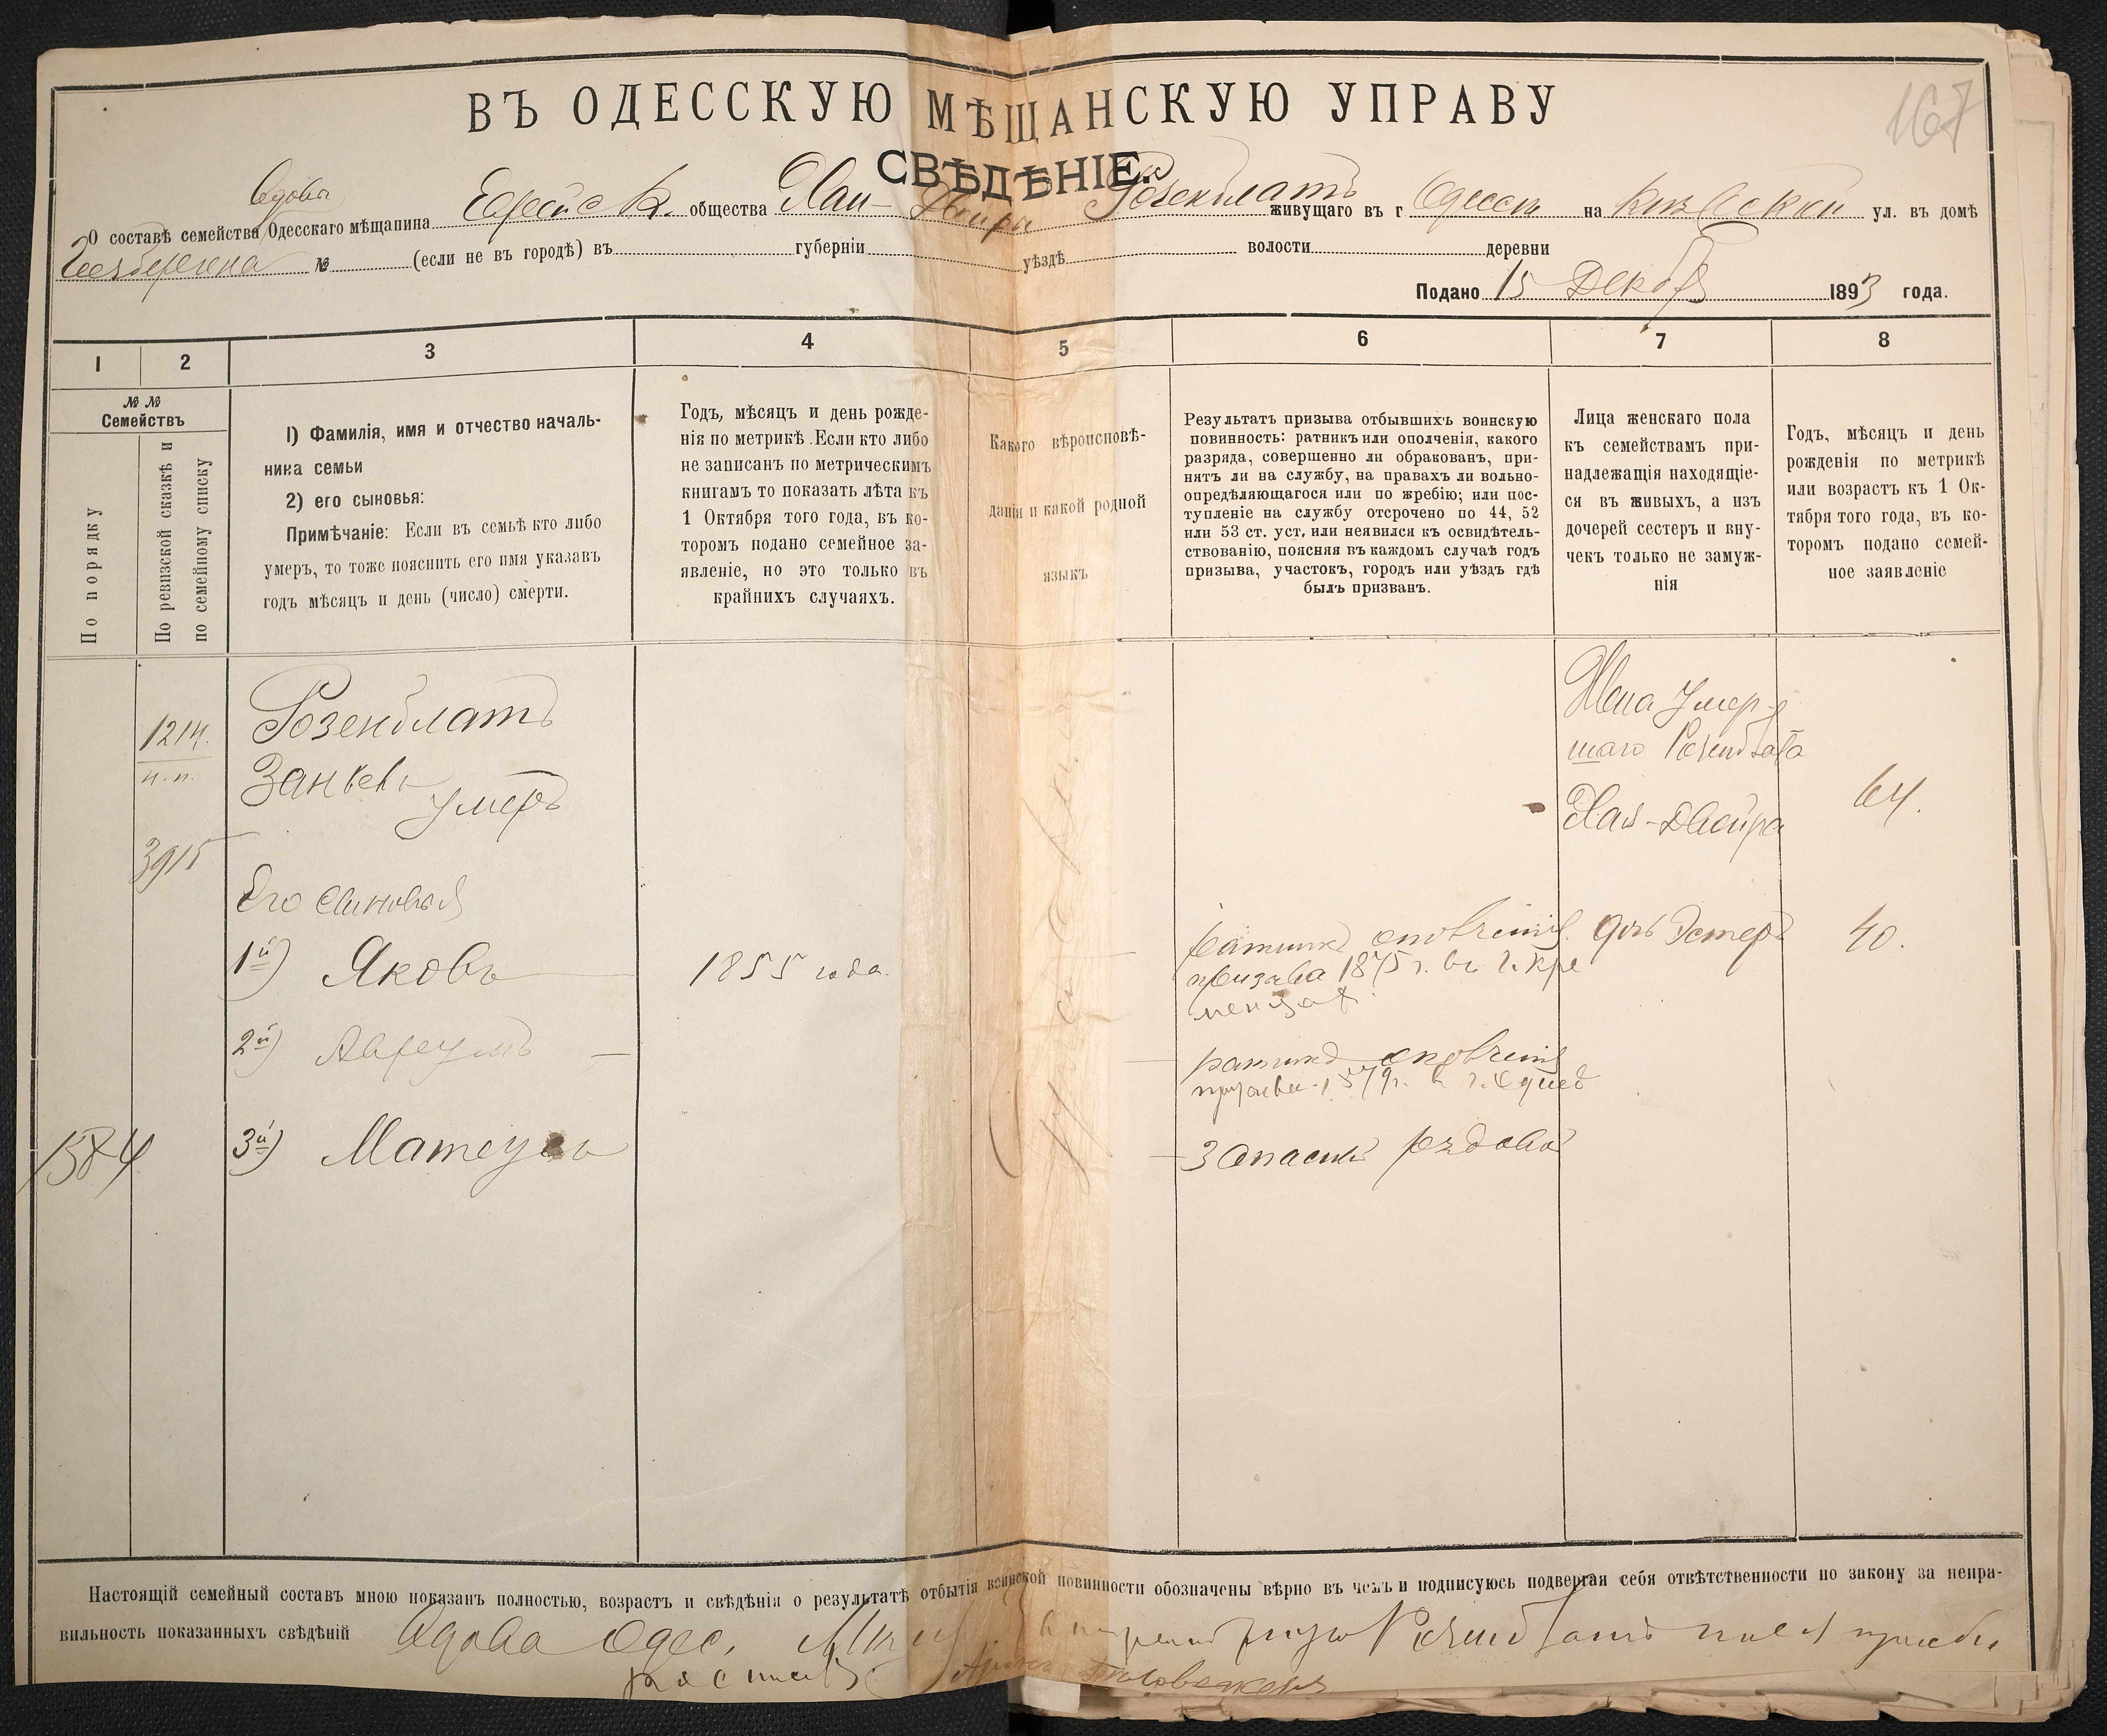 167
ВЪ ОДЕССКУЮ МѢЩАНСКУЮ УПРАВУ
СВѢДѢНІЕ.
Вдова
О составѣ семейства Одесскаго мѣщанина Еврейск. общества Хаи-Двойри Розенблатъ живущаго въ г Одессѣ на ул. въ домѣ
№ (если не въ городѣ) въ губерніи уѣздѣ волости деревни
Подано 15 Декабря 1893 года.
1 2 3 4 5 6 7 8
№ №
Семействъ
По порядку
По ревизской сказкѣ и
по семейному списку
1) Фамилія, имя и отчество началь-
ника семьи
2) его сыновья:
Примѣчаніе: Если въ семьѣ кто либо
умеръ, то тоже пояснить его имя указавъ
годъ мѣсяцъ и день (число) смерти.
Годъ, мѣсяцъ и день рожде-
нія по метрикѣ. Если кто либо
не записанъ по метрическимъ
книгамъ то показать лѣта къ
1 Октября того года, въ ко-
торомъ подано семейное за-
явленіе, но это только въ
крайнихъ случаяхъ.
Какого вѣроисповѣ-
данія и какой родной
языкъ
Результатъ призыва отбывшихъ воинскую
повинность: ратникъ или ополченія, какого
разряда, совершенно ли обракованъ, при-
нятъ ли на службу, на правахъ ли вольно-
опредѣляющагося или по жребію; или пос-
тупленіе на службу отсрочено по 44, 52
или 53 ст. уст. или неявился къ освидѣтель-
ствованію, поясняя въ каждомъ случаѣ годъ
призыва, участокъ, городъ или уѣздъ гдѣ
былъ призванъ.
Лица женскаго пола
къ семействамъ при-
надлежащія находящіе-
ся въ живыхъ, а изъ
дочерей сестеръ и вну-
чекъ только не замуж-
нія
Годъ, мѣсяцъ и день
рожденія по метрикѣ
или возрастъ къ 1 Ок-
тября того года, въ ко-
торомъ подано семей-
ное заявленіе
1214
н.п.
3915
Розенблатъ
Занвель
умеръ
Жена умер-
шаго Розенблата
Хая-Двойра
64.
Его сыновья
1й) Яковъ
1855 года.
ратникъ ополченія
призыва 1875 г. въ г. Кре
менчугѣ
дчь Эстеръ
40.
2й) Авреумъ
ратникъ ополченія
призыва 1879г. въ г. Одессѣ
1584
3й) Матеусъ
запасный рядовой
Настоящій семейный составъ мною показанъ полностью, возрастъ и свѣдѣнія о результатѣ отбытія воинской повинности обозначены вѣрно въ чемъ и подписуюсь подвергая себя отвѣтственности по закону за непра-
вильность показанныхъ свѣдѣній Вдова Одес. Розенблатъ